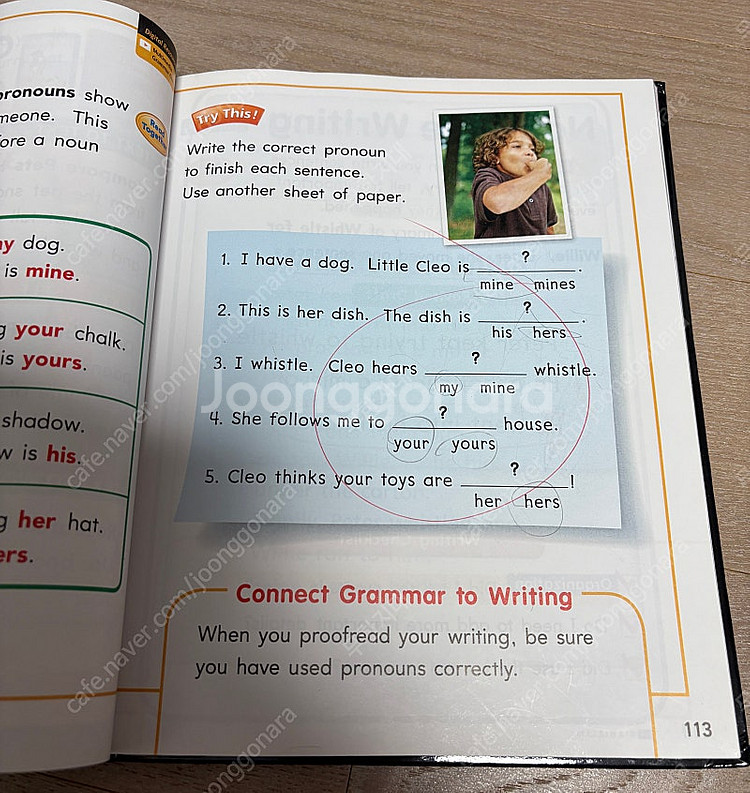 pronouns show
This
a noun
dog.
is mine.
your chalk.
is yours.
shadow.
is his.
her hat.
Read Together
Try This!
Write the correct pronoun
to finish each sentence.
Use another sheet of paper.
1. I have a dog. Little Cleo is ? .
mine mines
2. This is her dish. The dish is ? .
his hers
3. I whistle. Cleo hears ? whistle.
my mine
4. She follows me to ? house.
your yours
5. Cleo thinks your toys are ? !
her hers
Connect Grammar to Writing
When you proofread your writing, be sure
you have used pronouns correctly.
113
Joonggonara
cafe.naver.com/joonggonara